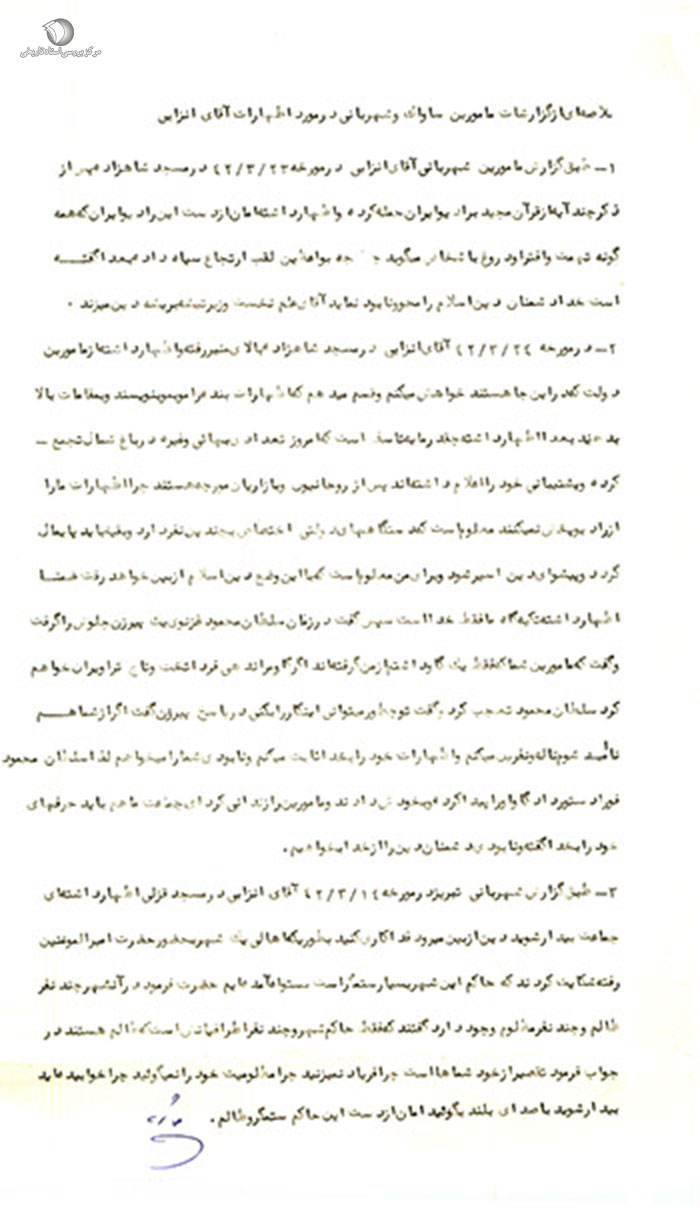 مرکز بررسی اسناد تاریخی
خلاصه‌ای از گزارشات مامورین ساواک و شهربانی در مورد اظهارات آقای انزابی
۱- طبق گزارش مامورین شهربانی آقای انزابی در مورخه ۴۲/۳/۲۳ در مسجد شاهزاده پس از
ذکر چند آیه از قرآن مجید براد یو ایران حمله کرده و اظهار داشته امان از دست این راد یو ایران که همه
گونه تهمت و افترا و دروغ با شخاص میگوید بواعظین لقب ارتجاع سیاه داده بعد اگفتـــه
است خدا دشمنان دین اسلام را محو و نابود نماید آقای علم نخست وزیر تیشه بریشه دین میزند .
۲- در مورخه ۴۲/۳/۲۴ آقای انزابی در مسجد شاهزاده ببالای منبر رفته و اظهار داشته از مامورین
دولت که در این جا هستند خواهش میکنم و قسم مید هم که اظهارات بنده را موبمو بنویسند و بمقامات بالا
بد هند بعدا اظهار داشته چقدر مایه تاسف است که امروز تعدادی بهائی و غیره در باغ شمال تجمع -
کرده و پشتیبانی خود را اعلام داشته‌اند پس از روحانیون و بازاریان مورچه هستند چرا اظهارات ما را
از راد یو پخش نمیکنند معلوم است که دستگاههای دولتی اختصاص بچندین نفر دارد و بقیه باید پایمال
گردد و پیشوای دین اسیر شود و برای من معلوم است که با این وضع دین اسلام از بین خواهد رفت ضمنـا
اظهار داشته تکیه گاه ما فقط خدا است سپس گفت در زمان سلطان محمود غزنوی یک پیرزن جلوش را گرفت
و گفت که مامورین شما که فقط یک گاو داشتم از من گرفته‌اند اگر گاو مرا ند هی فردا تخت و تاج ترا ویران خواهم
کرد سلطان محمود تعجب کرد و گفت تو چطور میتوانی اینکار را بکنی در پاسخ پیرزن گفت اگر از شما هــم
نا امید شوم ناله و نفرین میکنم و اظهارات خود را بخدا ثابت میکنم و نابودی شما را میخواهم لذا سلطان محمود
فورا دستور داد گاو او را پیدا کرده و بخودش دادند و مامورین را زندانی کرد ای جماعت ما هم باید حرفهای
خود را بخدا گفته و نابودی دشمنان دین را از خدا بخواهیم .
۳- طبق گزارش شهربانی تبریز در مورخه ۴۲/۳/۱۴ آقای انزابی در مسجد قزللی اظهار داشته ای
جماعت بیدار شوید دین از بین میرود فداکاری کنید بطوریکه اهالی یک شهر بحضور حضرت امیرالمومنین
رفته شکایت کردند که حاکم این شهر بسیار ستمگر است بستوه آمده ایم حضرت فرمود در آن شهر چند نفر
ظالم و چند نفر مظلوم وجود دارد گفتند که فقط حاکم شهر و چند نفر اطرافیانش است که ظالم هستند در
جواب فرمود تقصیر از خود شماها است چرا فریاد نمیزنید چرا مظلومیت خود را نمیگوئید چرا خوابید باید
بیدار شوید با صدای بلند بگوئید امان از دست این حاکم ستمگر و ظالم .